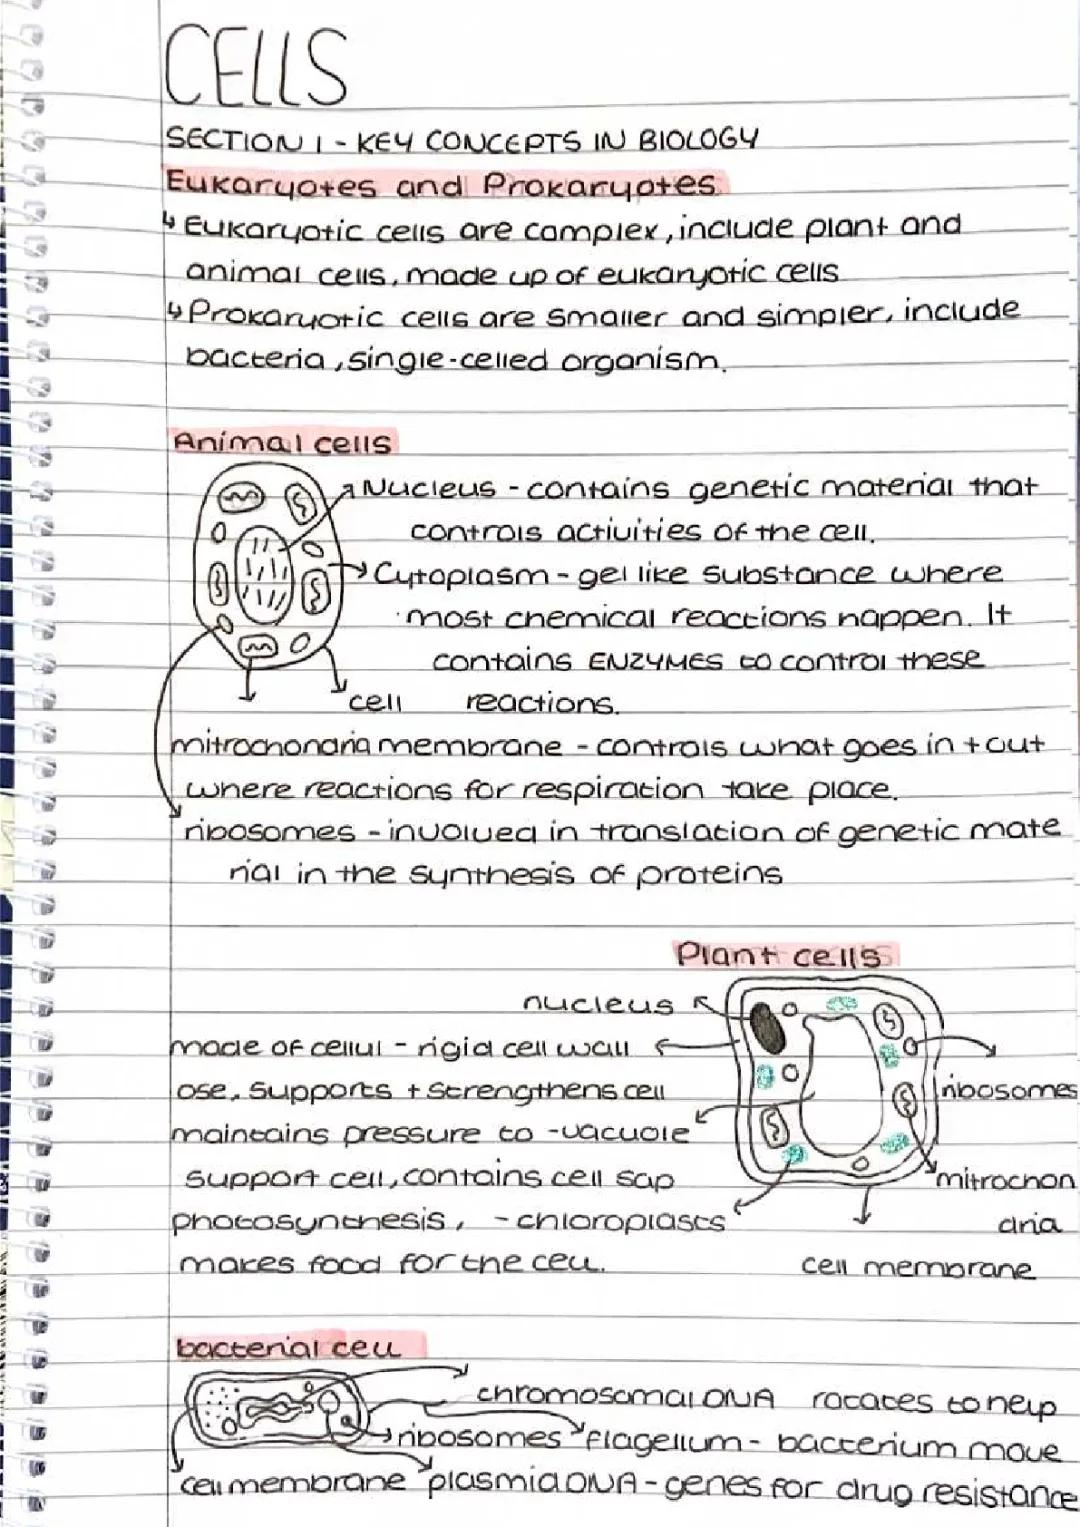 CELLS
SECTION 1 - KEY CONCEPTS IN BIOLOGY
Eukaryotes and Prokaryotes
↳ Eukaryotic cells are complex, include plant and
animal cells, made up of eukaryotic cells
↳ Prokaryotic cells are smaller and simpler, include
bacteria, single-celled organism.
Animal cells
Nucleus - contains genetic material that
controls activities of the cell.
Cytoplasm - gel like substance where
most chemical reactions happen. It
contains ENZYMES to control these
cell reactions.
mitrochondria membrane - controls what goes in + out
where reactions for respiration take place.
ribosomes - involved in translation of genetic mate
rial in the synthesis of proteins
Plant cells
nucleus
made of cellul - rigid cell wall
ose, supports + strengthens cell
ribosomes
maintains pressure to - vacuole
support cell, contains cell sap
mitrochon
photosynthesis, - chloroplasts
dria
makes food for the cell.
cell membrane
bacterial cell
chromosomal DNA rotates to help
ribosomes flagellum - bacterium move
cell membrane plasmid DNA - genes for drug resistance